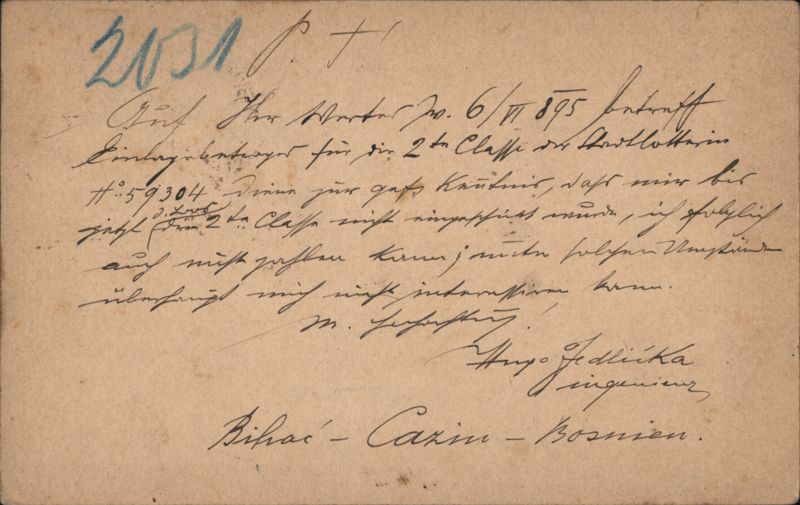 2031 P. †
Auf Ihr Wertes v. 6/VI 895 betreff
Einlagebetrages für die 2te Classe der Stadtlotterie
No. 59304 diene zur gefl. Kenntnis, dass mir bis
jetzt d. Loos 2te Classe nicht eingeschickt wurde, ich folglich
auch nicht zahlen kann; unter solchen Umständen
überhaupt mich nicht interessiren kann.
M. Hochachtung!
Hugo Jedlička
ingenieur
Bihać – Cazin – Bosnien.